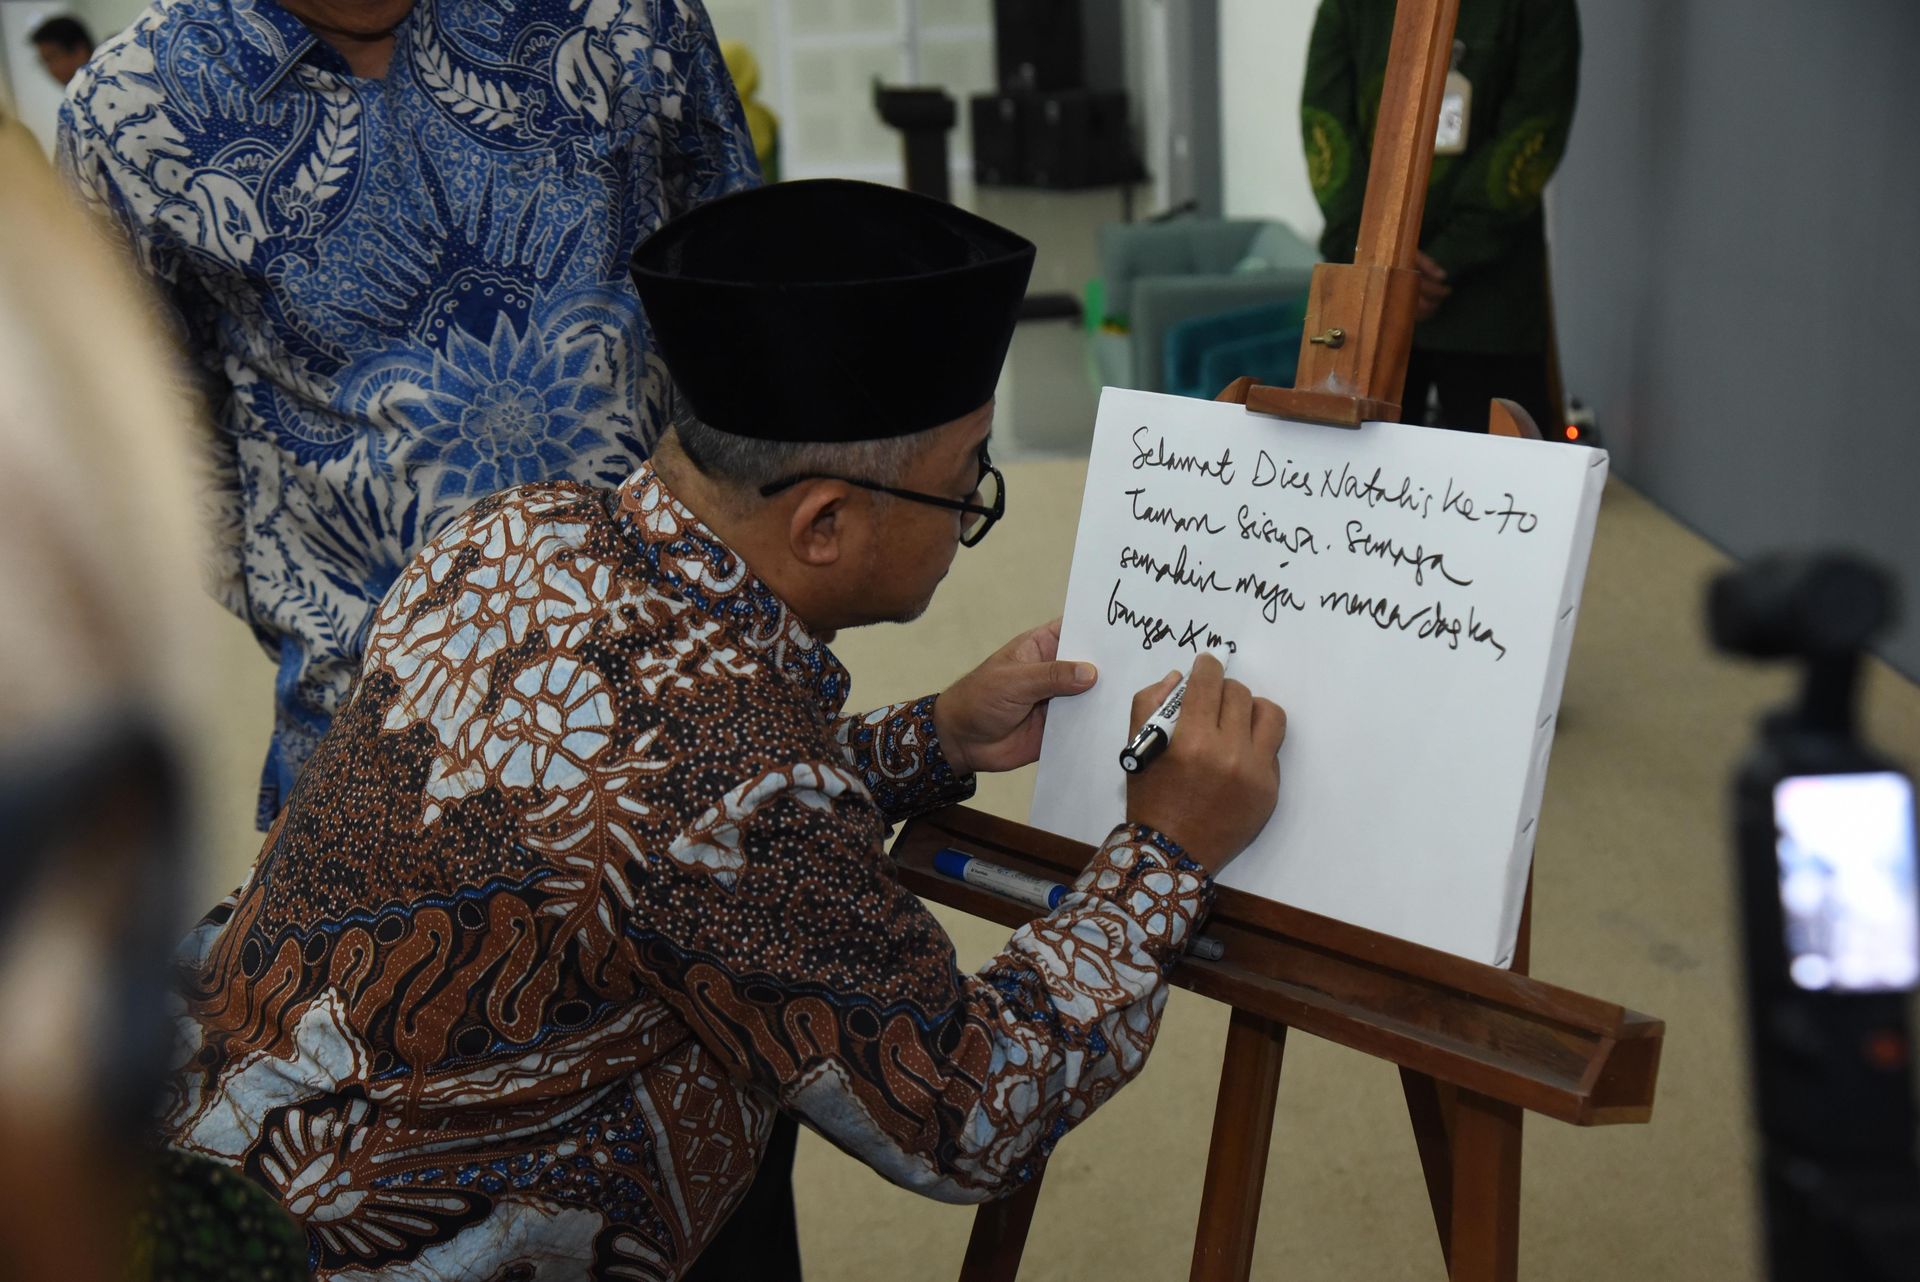 Selamat Dies Natalis Ke-70
Taman Siswa. Semoga
semakin maja mencerdaskan
bangsa & mo